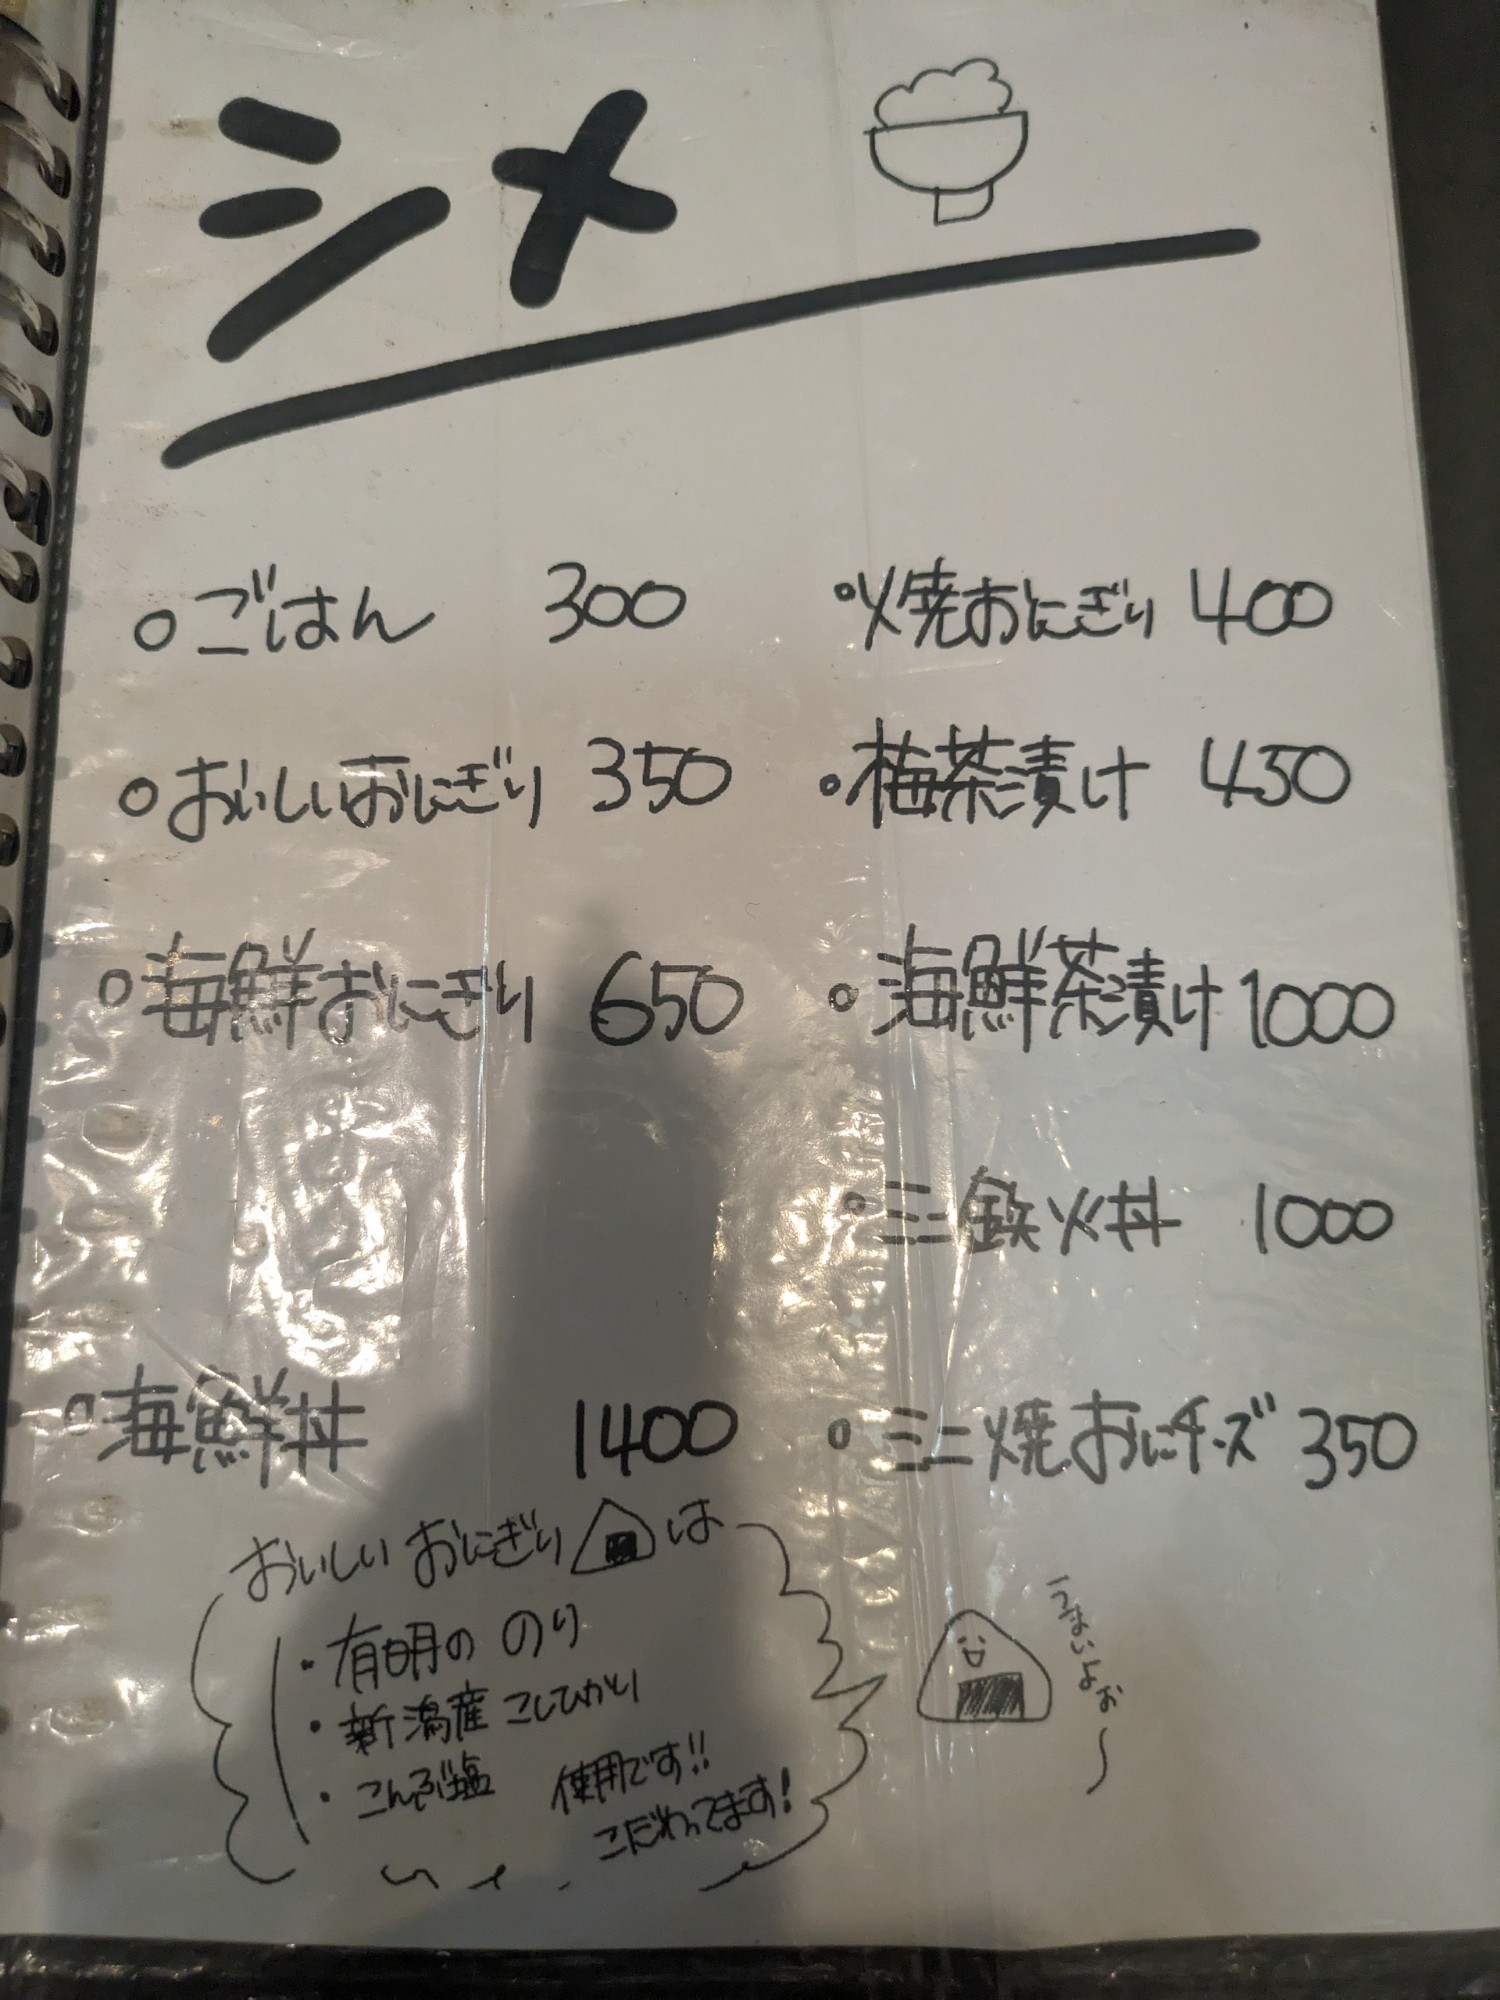 シメ
ごはん 300
焼おにぎり 400
おいしいおにぎり 350
梅茶漬け 450
海鮮おにぎり 650
海鮮茶漬け 1000
ミニ鉄火丼 1000
海鮮丼 1400
ミニ焼おにチーズ 350
おいしい おにぎりは
・有明の のり
・新潟産 こしひかり
・こんぶ塩 使用です!!
こだわってます!
うまいよぉ〜